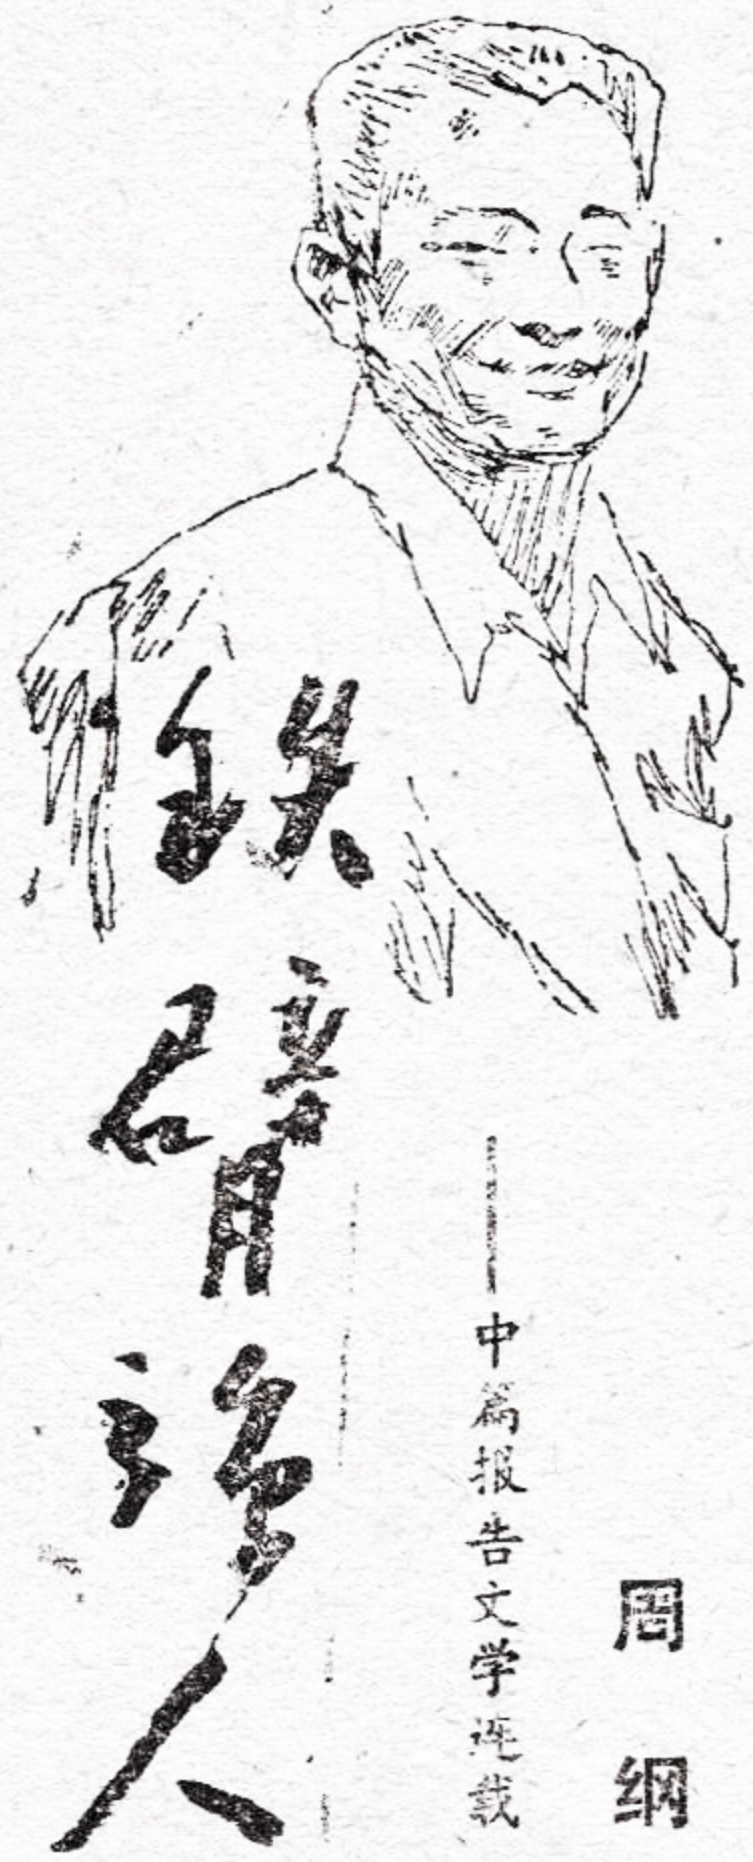 铁臂人
——中篇报告文学连载
周纲